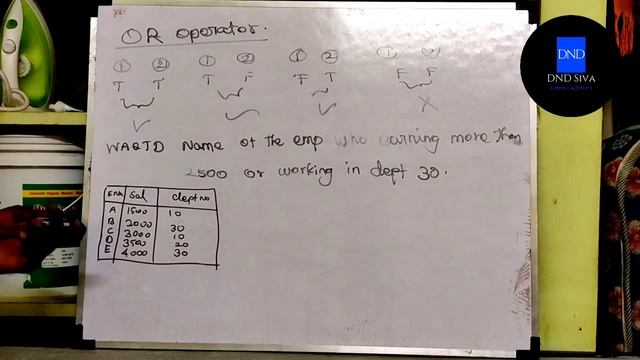 OR operator.
① ② ① ② ① ② ① ②
T T T F F T F F
✓ ✓ ✓ X
WAQTD Name of the emp who earning more than
2500 or working in dept 30.
Sal deptno
A 1500 10
B 2000 30
C 3000 10
D 3500 20
E 4000 30
DND
DND SIVA